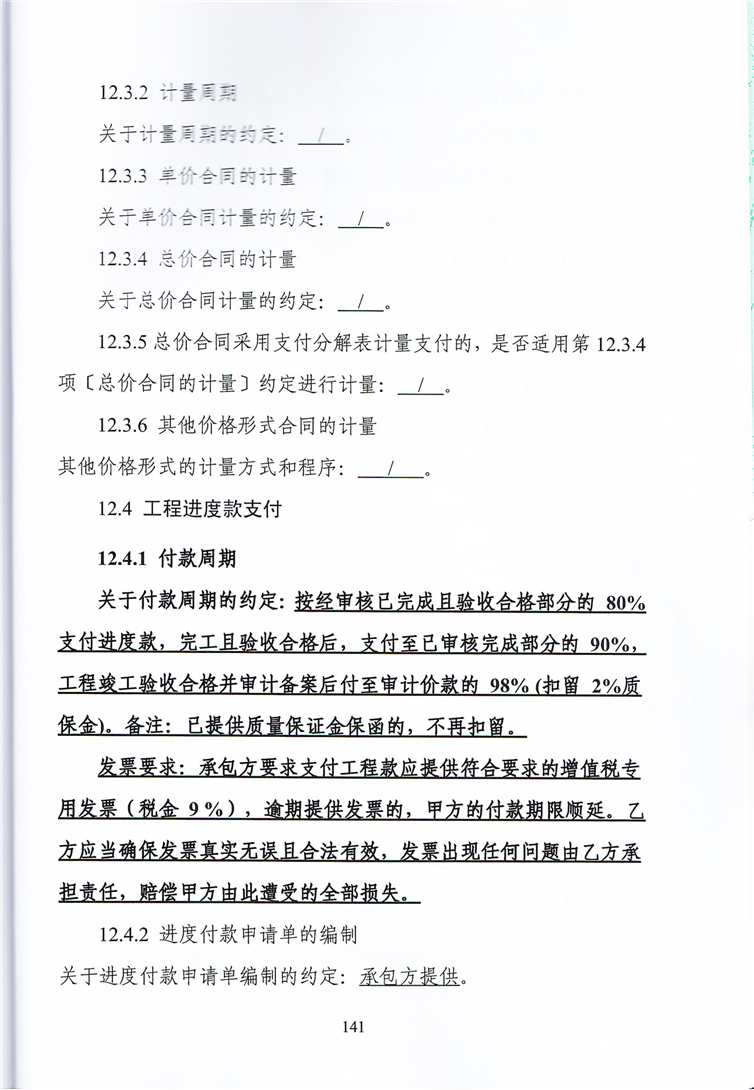 12.3.2 计量周期
关于计量周期的约定：  /  。
12.3.3 单价合同的计量
关于单价合同计量的约定：  /  。
12.3.4 总价合同的计量
关于总价合同计量的约定：  /  。
12.3.5 总价合同采用支付分解表计量支付的，是否适用第 12.3.4
项〔总价合同的计量〕约定进行计量：  /  。
12.3.6 其他价格形式合同的计量
其他价格形式的计量方式和程序：  /  。
12.4 工程进度款支付
12.4.1 付款周期
关于付款周期的约定：按经审核已完成且验收合格部分的 80%
支付进度款，完工且验收合格后，支付至已审核完成部分的 90%，
工程竣工验收合格并审计备案后付至审计价款的 98% (扣留 2%质
保金)。备注：已提供质量保证金保函的，不再扣留。
发票要求：承包方要求支付工程款应提供符合要求的增值税专
用发票（税金 9 %），逾期提供发票的，甲方的付款期限顺延。乙
方应当确保发票真实无误且合法有效，发票出现任何问题由乙方承
担责任，赔偿甲方由此遭受的全部损失。
12.4.2 进度付款申请单的编制
关于进度付款申请单编制的约定：承包方提供。
141